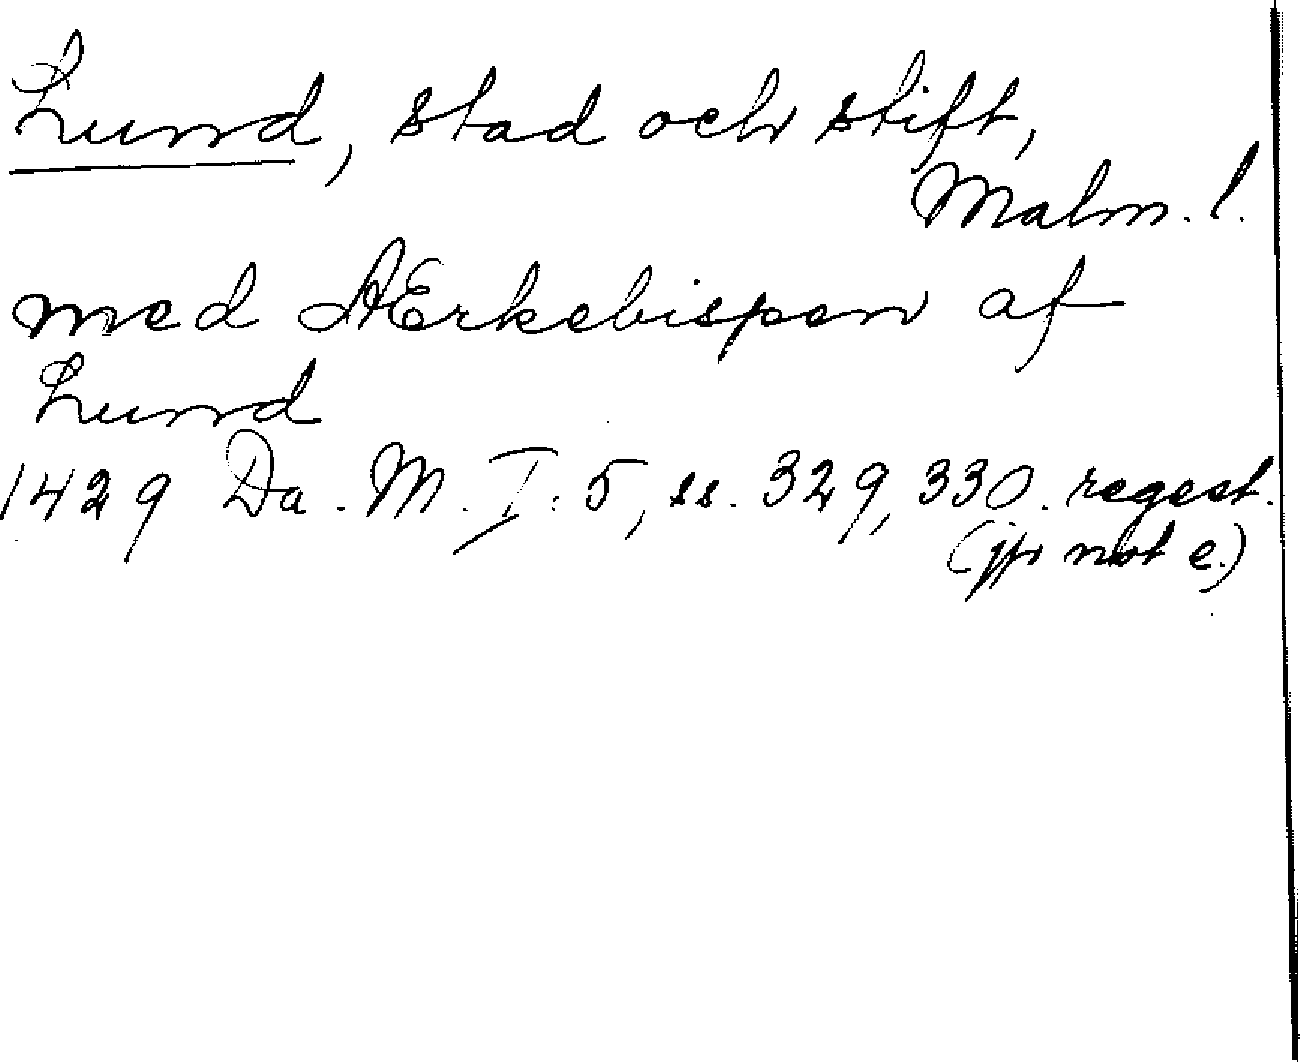 Lund, stad och stift,
Malm. l.
med Ærkebispen af
Lund
1429 Da. M. I: 5, ss. 329, 330. regest.
(jfr not e.)